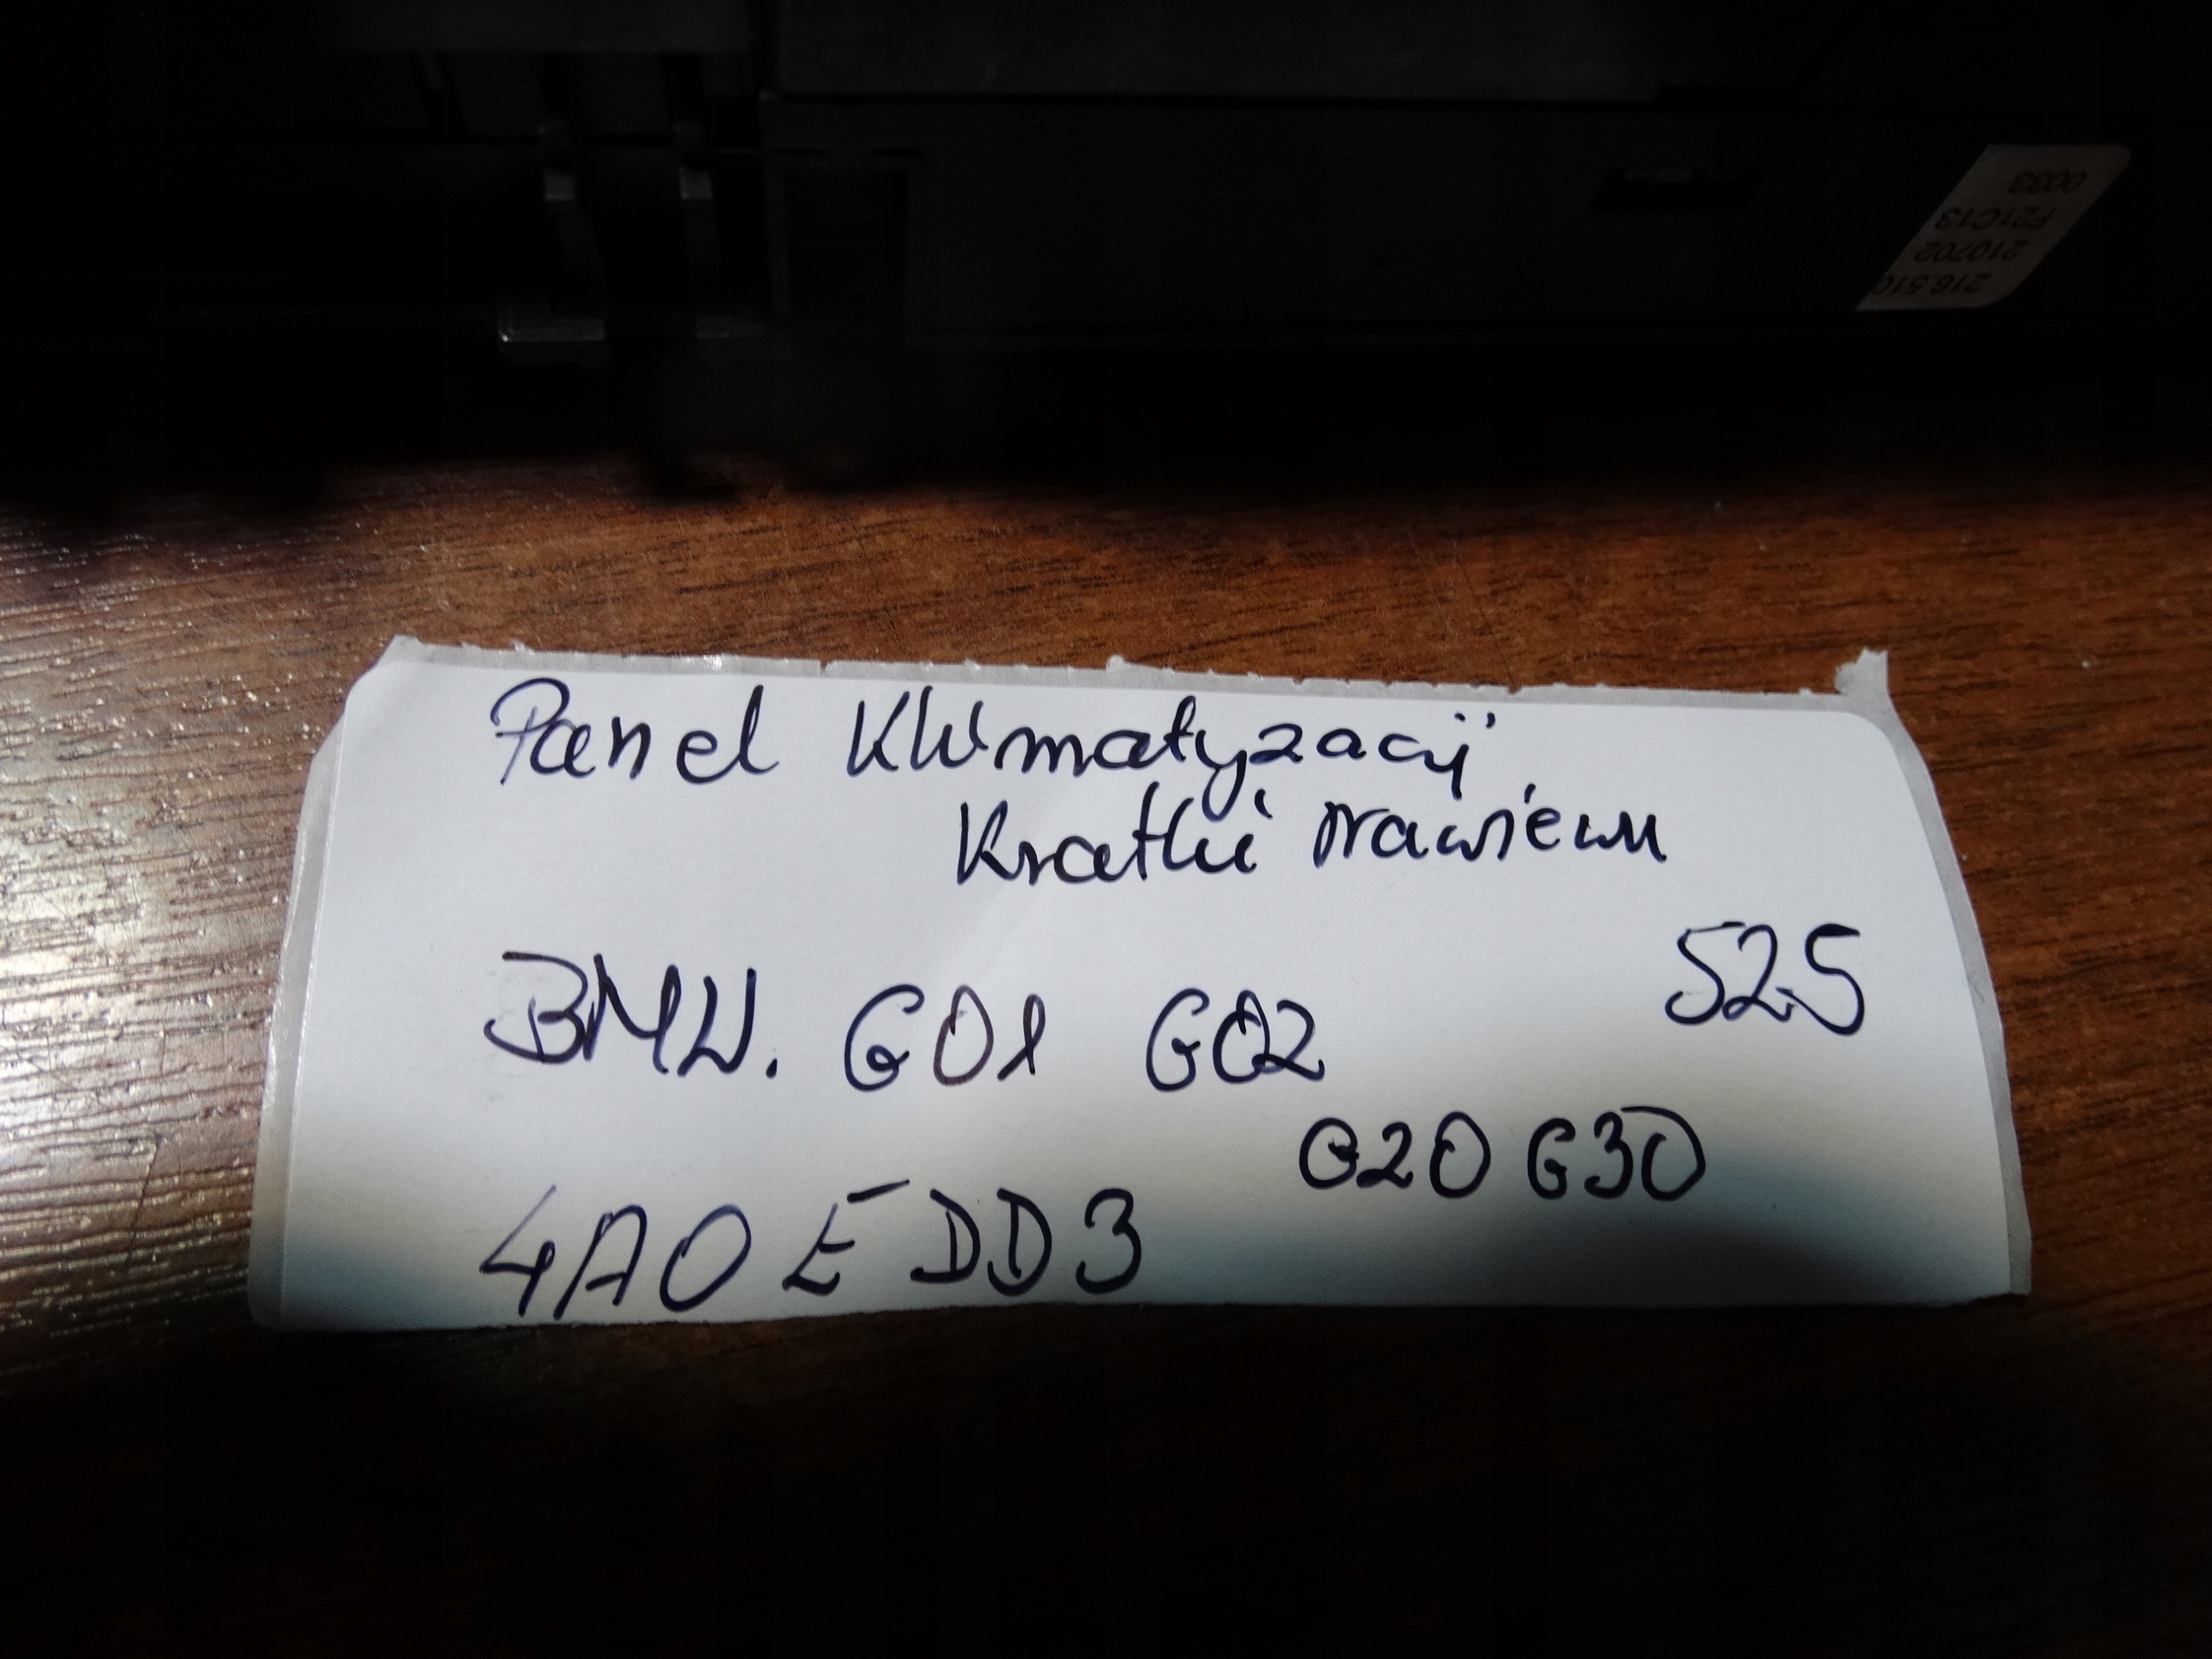 0033
F21C13
210702
216.510
Panel Klimatyzacji
Kratki nawiewu
525
BMW. G01 G02
G20 G30
4A0EDD3